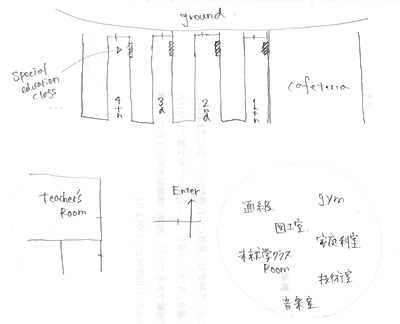 ground
special
education
class
4th
3d
2nd
1th
cafeteria
Teacher's
Room
Enter
通級
gym
図工室
家庭科室
未就学クラス
Room
技術室
音楽室